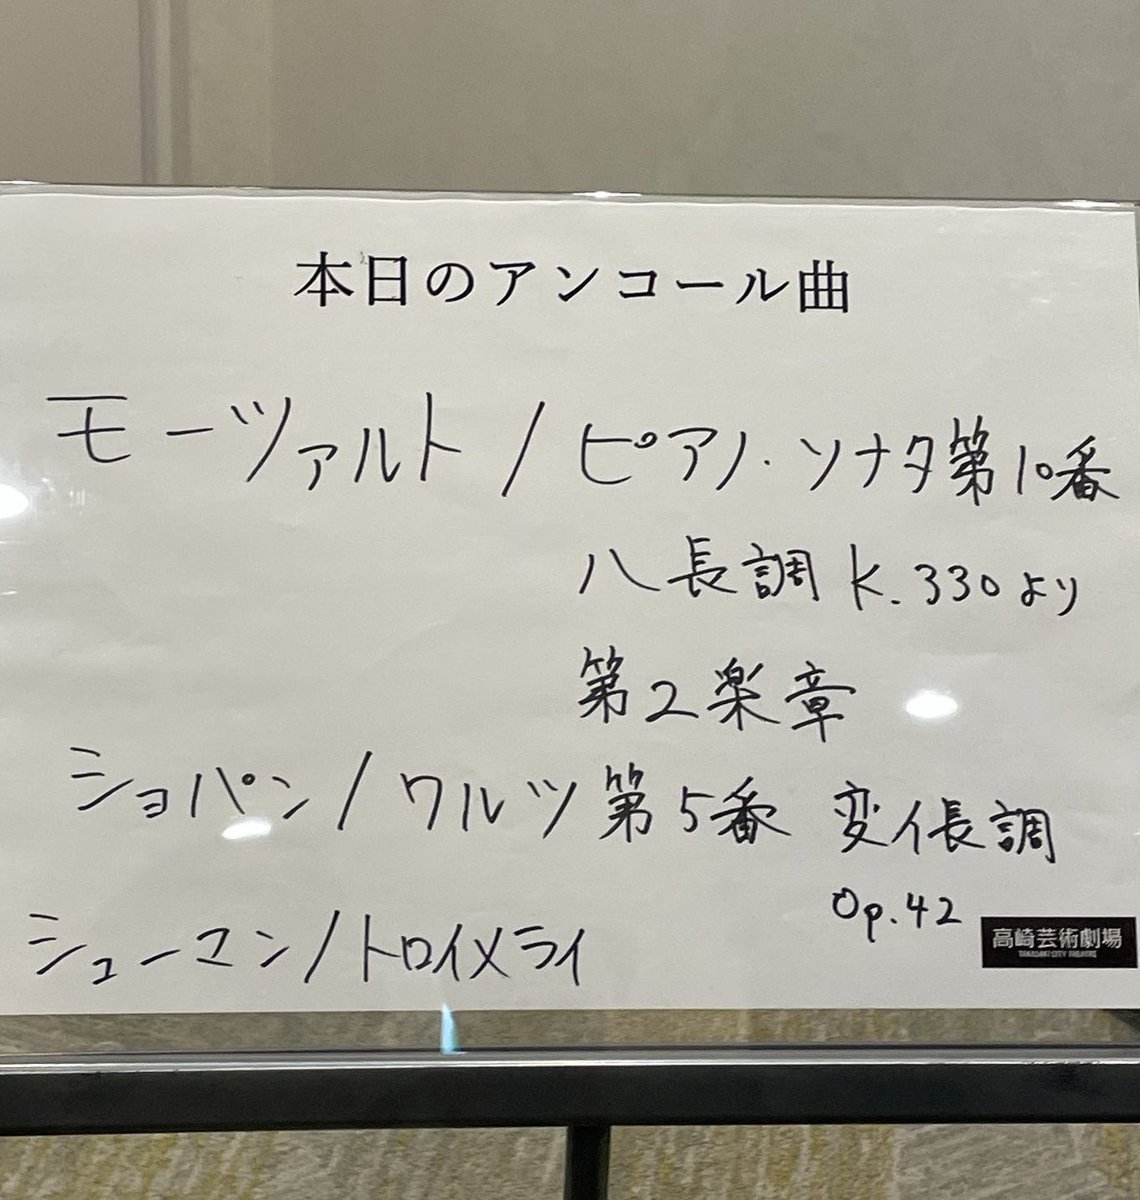 本日のアンコール曲
モーツァルト/ピアノ・ソナタ第10番
ハ長調 K.330より
第2楽章
ショパン/ワルツ第5番 変イ長調
Op.42
シューマン/トロイメライ
高崎芸術劇場
TAKASAKI CITY THEATRE